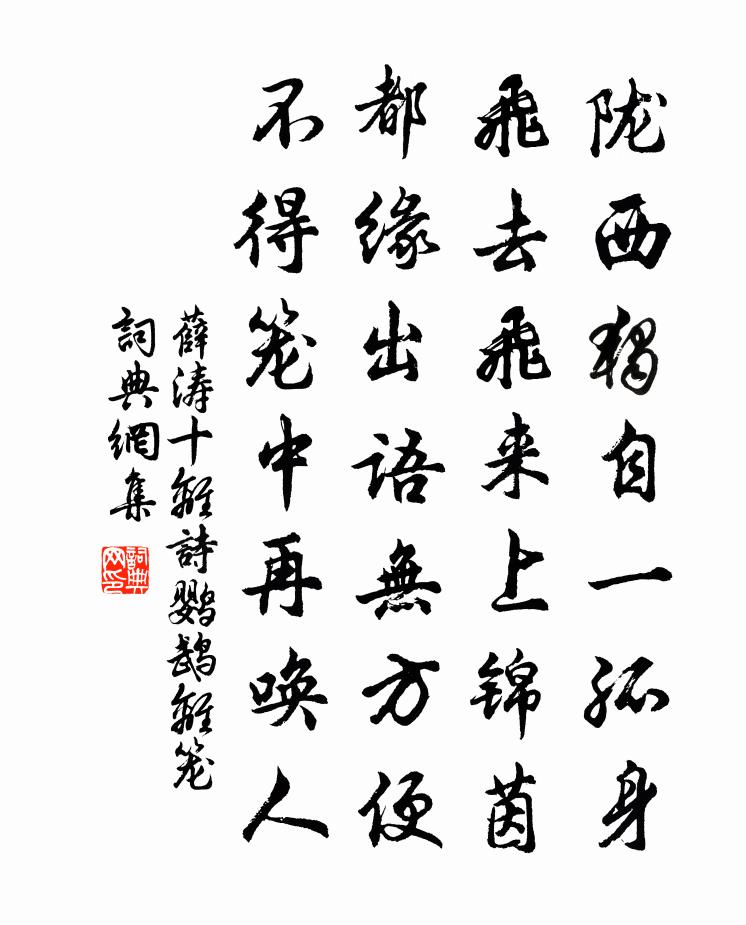 陇西独自一孤身
飞去飞来上锦茵
都缘出语無方便
不得笼中再唤人
薛涛十離詩鹦鹉離笼
詞典網集
詞典网印